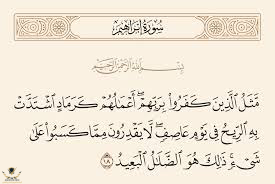 سُورَةُ إِبْرَاهِيم
بِسْمِ اللَّهِ الرَّحْمَٰنِ الرَّحِيمِ
مَّثَلُ الَّذِينَ كَفَرُوا بِرَبِّهِمْ ۖ أَعْمَالُهُمْ كَرَمَادٍ اشْتَدَّتْ
بِهِ الرِّيحُ فِي يَوْمٍ عَاصِفٍ ۖ لَّا يَقْدِرُونَ مِمَّا كَسَبُوا عَلَىٰ
شَيْءٍ ۚ ذَٰلِكَ هُوَ الضَّلَالُ الْبَعِيدُ ١٨